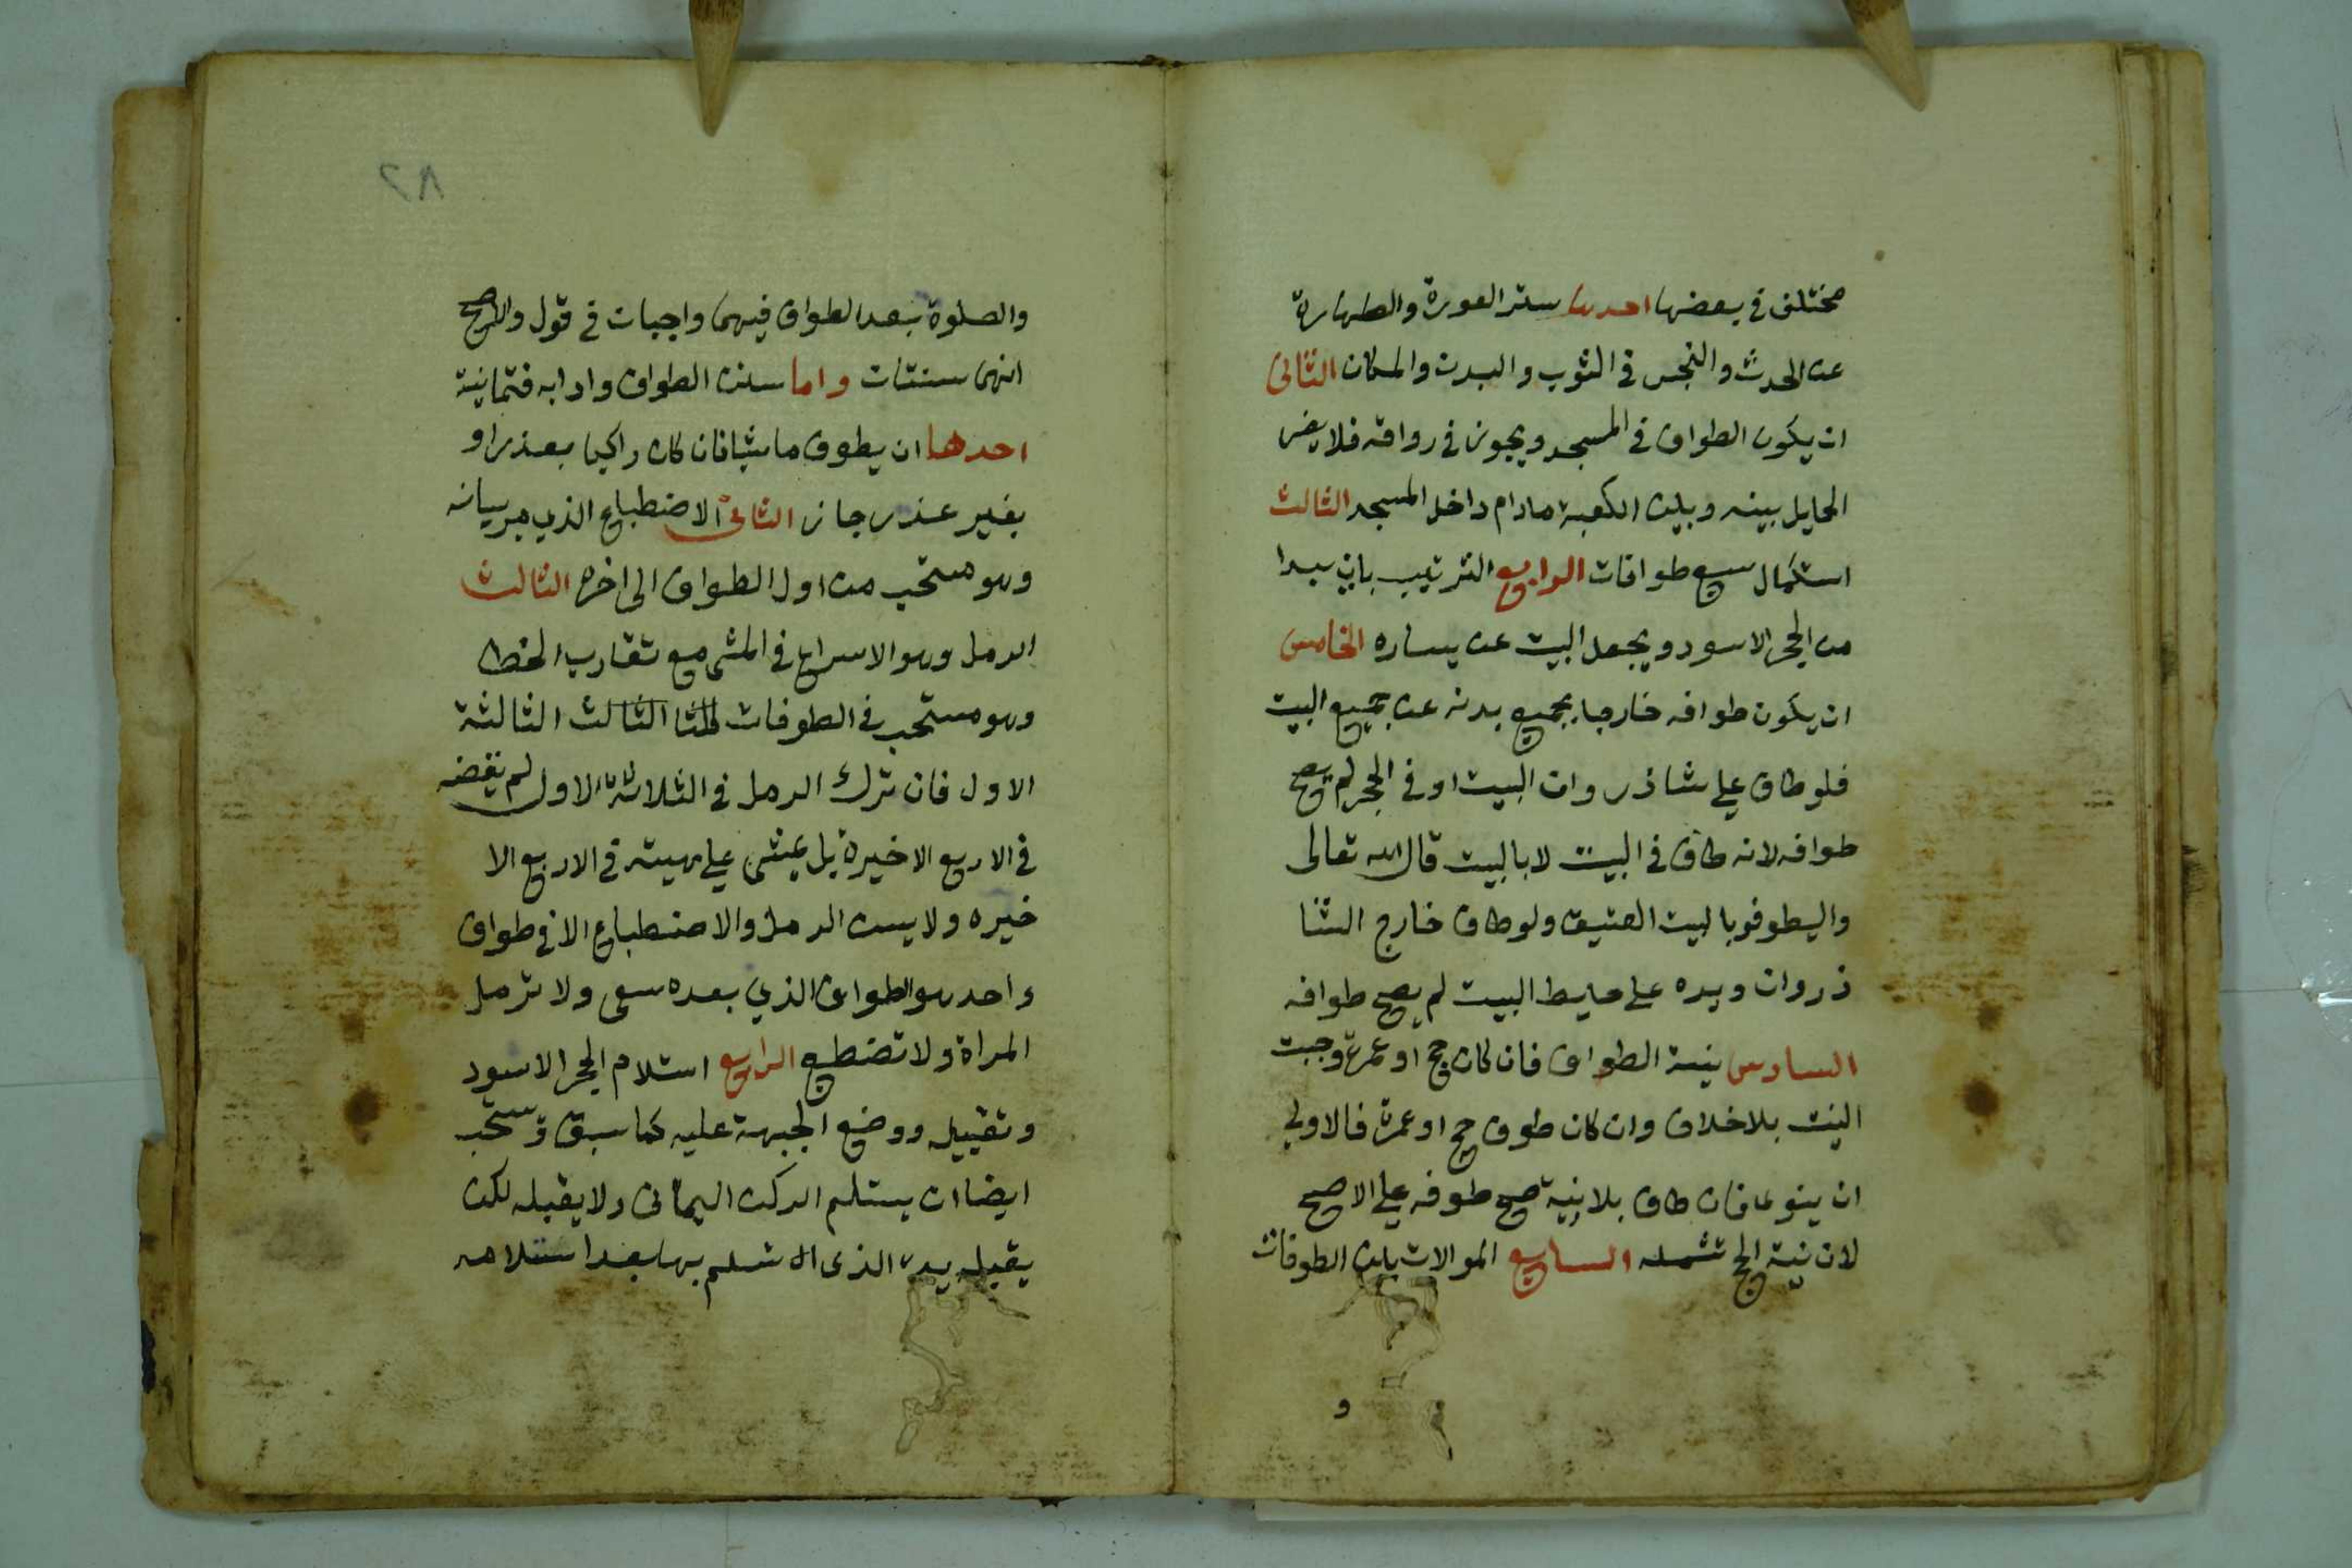 مختلف في بعضها احدها ستر العورة والطهارة
عن الحدث والنجس في الثوب والبدن والمكان الثاني
ان يكون الطواف في المسجد ويجوز في رواقه فلا يضر
الحايل بينه وبين الكعبة مادام داخل المسجد الثالث
استكمال سبع طوافات الرابع الترتيب بان يبدا
من الحجر الاسود ويجعل البيت عن يساره الخامس
ان يكون طوافه خارجا بجميع بدنه عن جميع البيت
فلو طاف علي شاذروان البيت او في الحجر لم يصح
طوافه لانه طاف في البيت لا بالبيت قال الله تعالى
واليطوفو بالبيت العتيق ولو طاف خارج الشا
ذروان ويده على حايط البيت لم يصح طوافه
السادس نية الطواف فان كان حج او عمرة وجبت
النيت بلا خلاف وان كان طوف حج او عمرة فالاولي
ان ينوي فان طاف بلا نية صح طوفه علي الاصح
لان نية الحج تشمله السابع الموالات بين الطوفات
و
٨٢
والصلوة بعد الطواف فيهى واجبات في قول والاصح
انهى سنتات واما سنن الطواف وادابه فثمانية
احدها ان يطوف ماشيا فان كان راكبا بعذر او
بغير عذر جاز الثاني الاضطباع الذي مر بيانه
وهو مستحب من اول الطواف الى اخره الثالث
الرمل وهو الاسراع في المشي مع تقارب الخطا
وهو مستحب في الطوفات الثالث الثالثة
الاول فان ترك الرمل في الثلاثة الاول لم يقضه
في الاربع الاخيرة بل يمشي علي هيته في الاربع الا
خيره ولا يسن الرمل والاضطباع الا في طواف
واحد هو الطواف الذي بعده سعى ولا ترمل
المراة ولا تضطبع الرابع استلام الحجر الاسود
وتقبيله ووضع الجبهة عليه كما سبق ويستحب
ايضا ان يستلم الركن اليماني ولا يقبله لكن
يقبل يده الذى استلم بها بعد استلامه